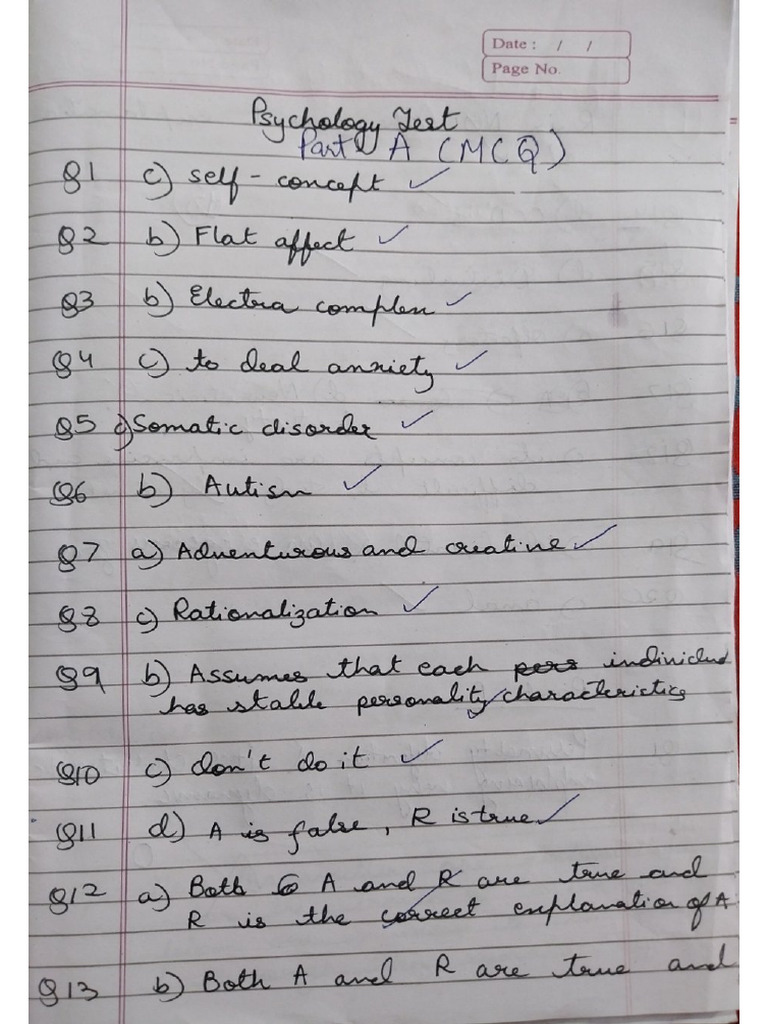 Date : / /
Page No.
Psychology Test
Part A (MCQ)
Q1 c) self-concept
Q2 b) Flat affect
Q3 b) Electra complex
Q4 c) to deal anxiety
Q5 c) Somatic disorder
Q6 b) Autism
Q7 a) Adventurous and creative
Q8 c) Rationalization
Q9 b) Assumes that each pers individual
has stable personality characteristics
Q10 c) don't do it
Q11 d) A is false, R is true
Q12 a) Both A and R are true and
R is the correct explanation of A
Q13 b) Both A and R are true and